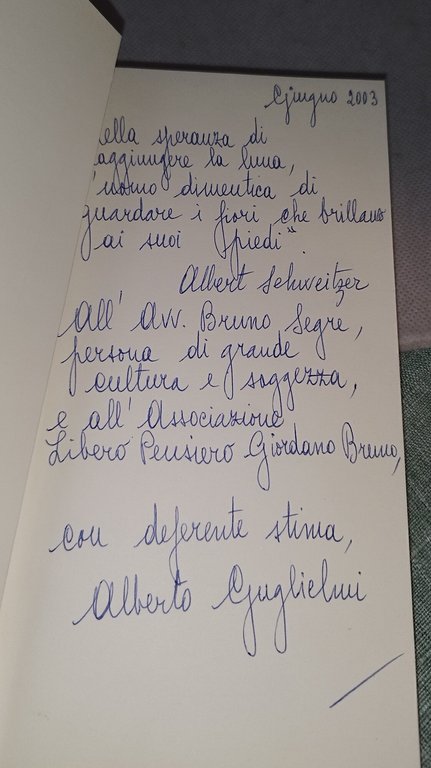 Giugno 2003
ella speranza di
aggiungere la luna,
'uomo dimentica di
guardare i fiori che brillano
ai suoi piedi"
Albert Schweitzer
All' Avv. Bruno Segre,
persona di grande
cultura e saggezza,
e all' Associazione
Libero Pensiero Giordano Bruno,
con deferente stima,
Alberto Guglielmi